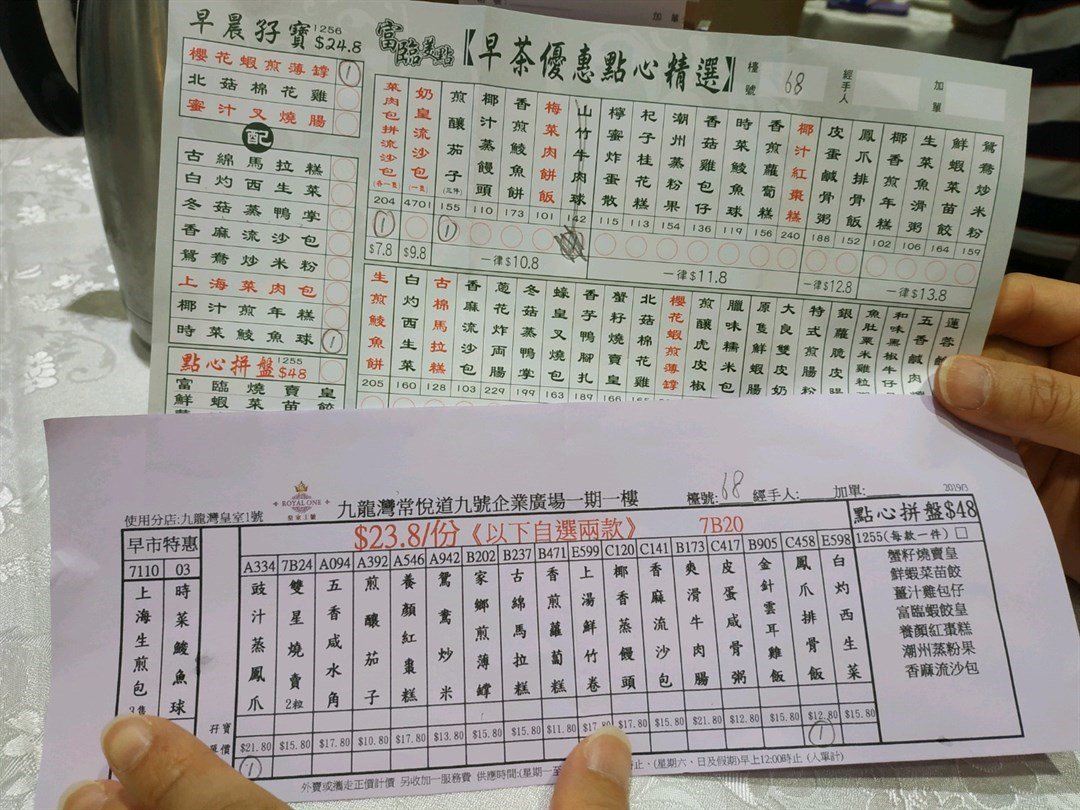 加單
早晨孖寶 1256 $24.8
櫻花蝦煎薄罉 1
北菇棉花雞
蜜汁叉燒腸
配
古綿馬拉糕
白灼西生菜
冬菇蒸鴨掌
香麻流沙包
鴛鴦炒米粉
上海菜肉包
椰汁煎年糕
時菜鯪魚球 1
點心拼盤 1255 $48
富臨燒賣皇
鮮蝦菜苗餃
富臨美點【早茶優惠點心精選】
檯號 68 經手人 加單
菜肉包拼流沙包(各一隻) 204 1
奶皇流沙包(一隻) 4701
煎釀茄子(三件) 155 1
椰汁蒸饅頭 110
香煎鯪魚餅 173
梅菜肉餅飯 101
山竹牛肉球 142
檸蜜炸蛋散 115
杞子桂花糕 113
潮州蒸粉果 154
香菇雞包仔 136
時菜鯪魚球 119
香煎蘿蔔糕 156
椰汁紅棗糕 240
皮蛋鹹骨粥 188
鳳爪排骨飯 152
椰香煎年糕 102
生菜魚滑粥 106
鮮蝦菜苗餃 164
鴛鴦炒米粉 159
$7.8 $9.8 一律$10.8 一律$11.8 一律$12.8 一律$13.8
生煎鯪魚餅 205
白灼西生菜 160
古棉馬拉糕 128
香麻流沙包 103
蔥花炸両腸 229
冬菇蒸鴨掌 199
蠔皇叉燒包 163
香芋鴨腳扎 189
蟹籽燒賣皇 166
北菇棉花雞
櫻花蝦煎薄罉
煎釀虎皮椒
臘味糯米包
原隻鮮蝦腸
大良雙皮奶
特式煎腸粉
銀蘿脆皮
魚肚粟米雞粒
和味黑椒牛仔
五香鹹
蓮蓉
ROYAL ONE
皇室1號
使用分店:九龍灣皇室1號
九龍灣常悅道九號企業廣場一期一樓
檯號: 68 經手人: 加單:
2019/3
早市特惠
7110 上海生煎包 3隻
03 時菜鯪魚球
$23.8/份《以下自選兩款》 7B20
A334 豉汁蒸鳳爪 $21.80 1
7B24 雙星燒賣 2粒 $15.80
A094 五香咸水角 $17.80
A392 煎釀茄子 $10.80
A546 養顏紅棗糕 $17.80
A942 鴛鴦炒米 $13.80
B202 家鄉煎薄罉 $15.80
B237 古綿馬拉糕 $15.80
B471 香煎蘿蔔糕 $11.80
E599 上湯鮮竹卷
C120 椰香蒸饅頭 $17.80
C141 香麻流沙包 $15.80
B173 爽滑牛肉腸 $21.80
C417 皮蛋咸骨粥 $12.80
B905 金針雲耳雞飯 $15.80
C458 鳳爪排骨飯 $12.80 1
E598 白灼西生菜 $15.80
孖寶
點心拼盤$48
1255(每款一件)
蟹籽燒賣皇
鮮蝦菜苗餃
薑汁雞包仔
富臨蝦餃皇
養顏紅棗糕
潮州蒸粉果
香麻流沙包
外賣或攜走正價計價 另收加一服務費 供應時間:(星期一至
止、(星期六、日及假期)早上12:00時止 (入單計)